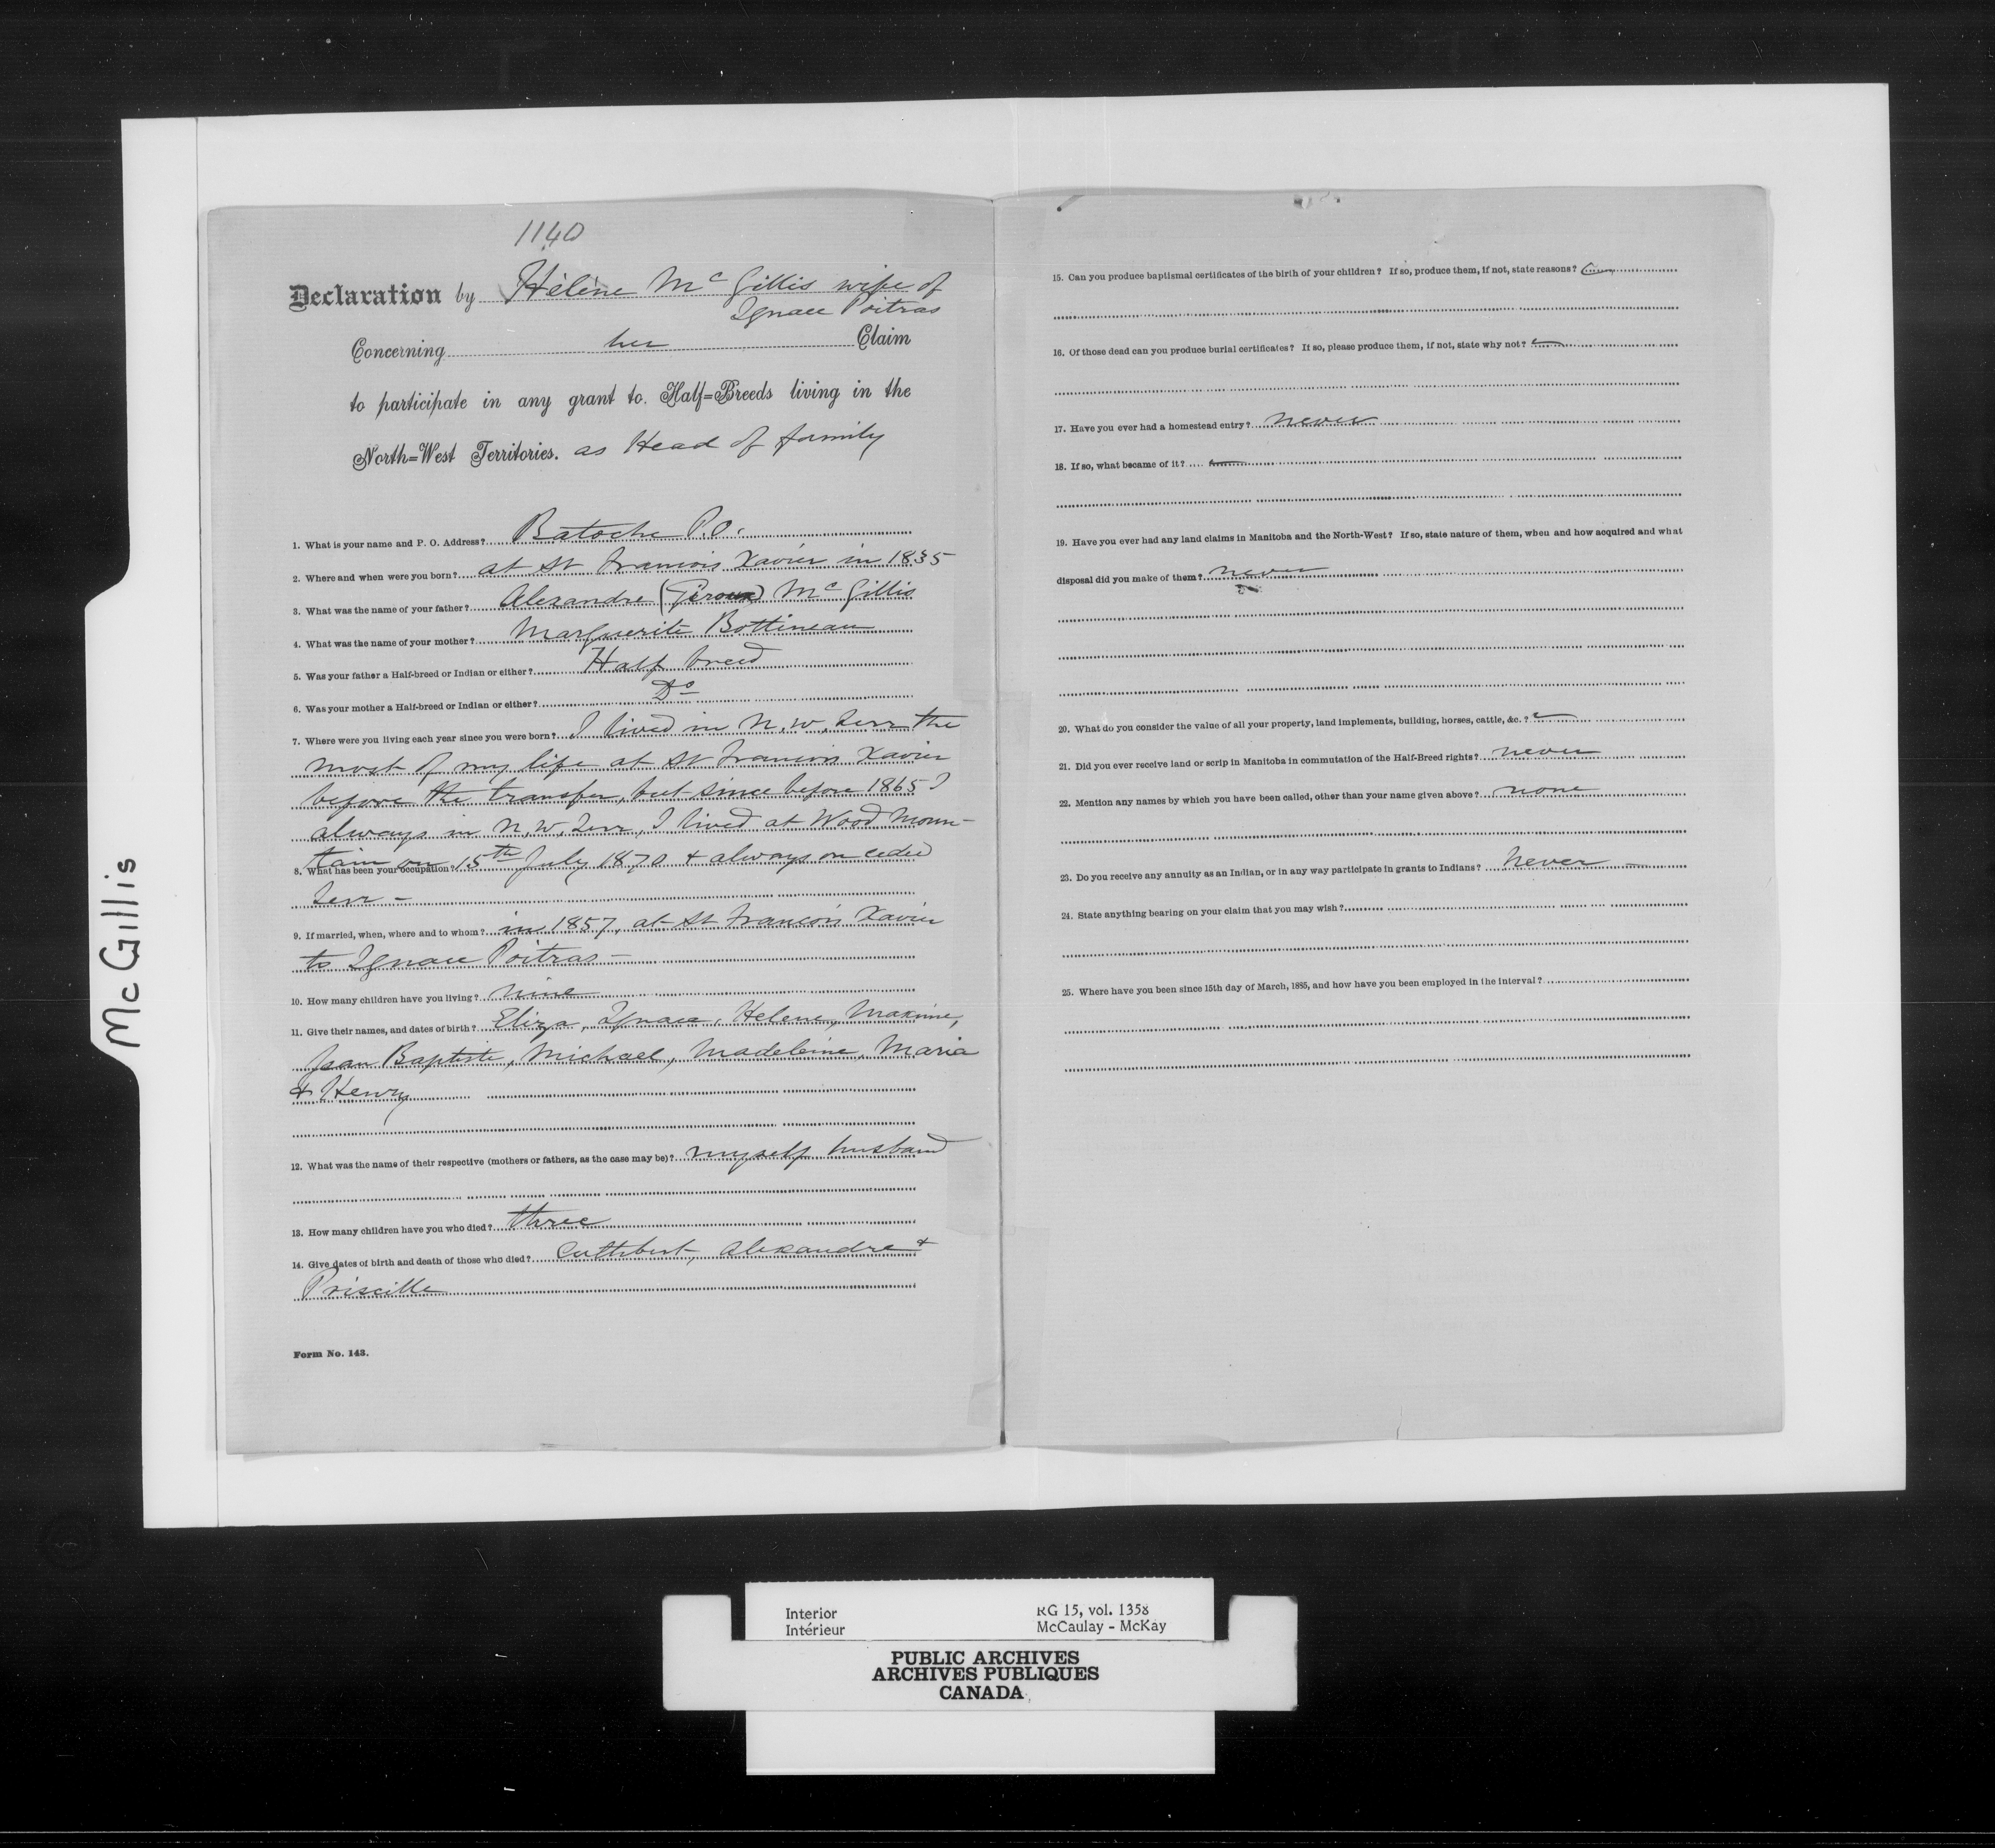 McGillis
1140
Declaration by Hélène Mc Gillis wife of
Ignace Poitras
Concerning her Claim
to participate in any grant to Half=Breeds living in the
North=West Territories. as Head of family
1. What is your name and P. O. Address? Batoche P.O.
2. Where and when were you born? at St Francois Xavier in 1835
3. What was the name of your father? Alexandre (Giroux) Mc Gillis
4. What was the name of your mother? Marguerite Bottineau
5. Was your father a Half-breed or Indian or either? Half breed
6. Was your mother a Half-breed or Indian or either? Do
7. Where were you living each year since you were born? I lived in N.W. Terr the
most of my life at St Francois Xavier
before the transfer, but since before 1865 I
always in N.W. Terr, I lived at Wood Moun-
tain on 15th July 1870 & always on ceded
8. What has been your occupation?
Terr -
9. If married, when, where and to whom? in 1857, at St Francois Xavier
to Ignace Poitras -
10. How many children have you living? nine
11. Give their names, and dates of birth? Eliza, Ignace, Helene, Maxime,
Jean Baptiste, Michael, Madeleine, Maria
& Henry
12. What was the name of their respective (mothers or fathers, as the case may be)? myself husband
13. How many children have you who died? three
14. Give dates of birth and death of those who died? Cuthbert, Alexandre &
Priscille
Form No. 143.
15. Can you produce baptismal certificates of the birth of your children? If so, produce them, if not, state reasons?
16. Of those dead can you produce burial certificates? If so, please produce them, if not, state why not?
17. Have you ever had a homestead entry? never
18. If so, what became of it?
19. Have you ever had any land claims in Manitoba and the North-West? If so, state nature of them, when and how acquired and what
disposal did you make of them? never
20. What do you consider the value of all your property, land implements, building, horses, cattle, &c.?
21. Did you ever receive land or scrip in Manitoba in commutation of the Half-Breed rights? never
22. Mention any names by which you have been called, other than your name given above? none
23. Do you receive any annuity as an Indian, or in any way participate in grants to Indians? never -
24. State anything bearing on your claim that you may wish?
25. Where have you been since 15th day of March, 1885, and how have you been employed in the interval?
Interior RG 15, vol. 1358
Intérieur McCaulay - McKay
PUBLIC ARCHIVES
ARCHIVES PUBLIQUES
CANADA